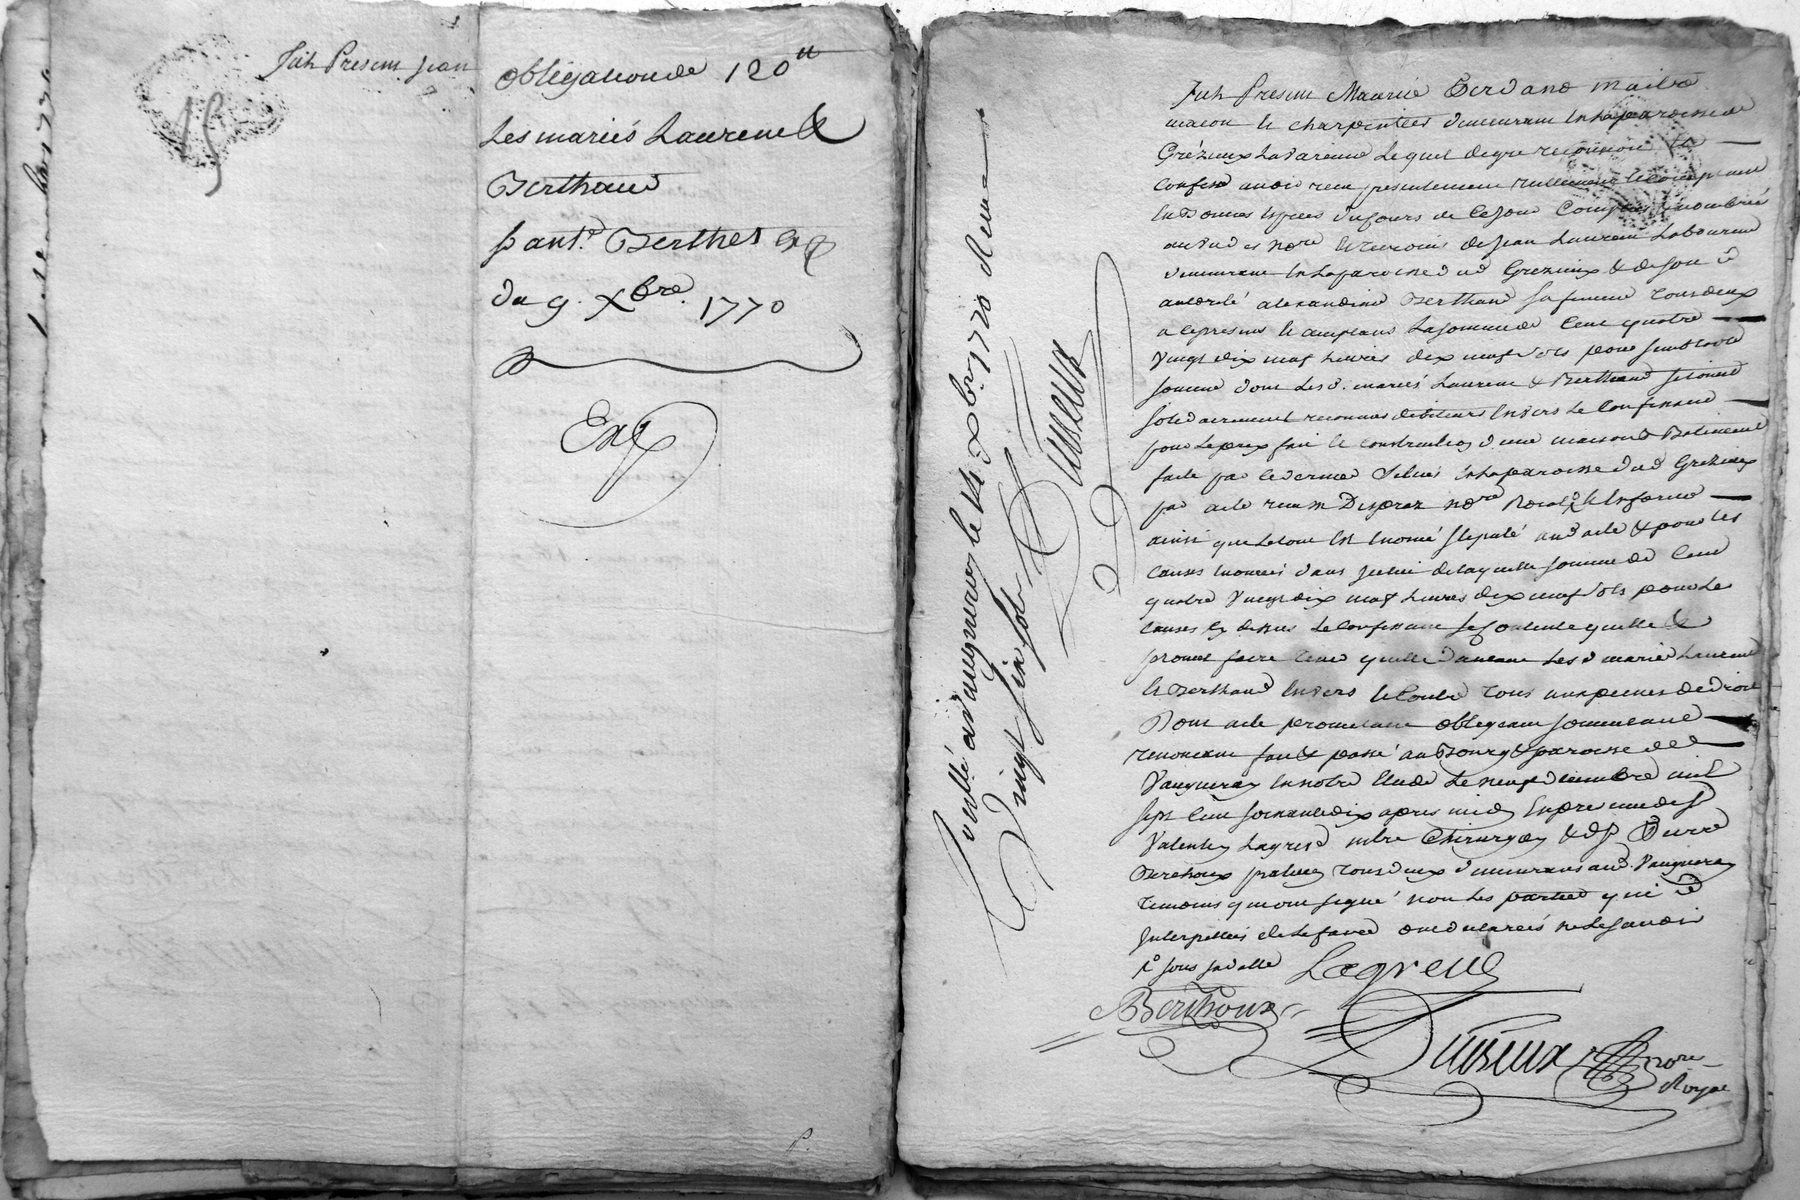 fut Present Jean
15
obligation de 120 lt
Les mariés Laurent &
Berthaud
p ant.e Berthet
du 9. Xbre. 1770
Exp
fut Present Maurice maitre
macon & charpentier demeurant en la paroisse de
Grézieux Lavarenne Lequel de gre reconnoit &
Confesse avoir reçu presentement reellement & comptant
en bonnes especes du cours de ce jour Comptées & nombrées
au vu des nore & temoins de Jean Laurent Laboureur
demeurant en la paroisse dud Grezieux & de son
autorité alexandrine Berthaud sa femme tous deux
a ce presens & acceptans La somme de Cent quatre
Vingt dix neuf Livres dix neuf sols pour semblable
somme dont Lesd. mariés Laurent & Berthaud se sont
solidairement reconnus debiteurs envers Le Confessant
pour le prix fait & construction d'une maison & Batiment
faite par ce dernier située en la paroisse dud Grezieux
par acte reçu m Desprez nore Royal
ainsi que le tout est enoncé & stipulé aud acte & pour les
causes enoncées dans icelui de laquelle somme de Cent
quatre Vingt dix neuf Livres dix neuf sols pour Les
causes cy dessus Le Confessant se contente quitte &
promet faire tenir quitte Lesd mariés Laurent
& Berthaud envers & contre tous aux peines de droit
Dont acte promettant obligeant soumettant
renonceant fait & passé au Bourg & paroisse de
Vaugneray en notre Etude Le neuf decembre mil
sept Cent soixante dix apres midy En presence de sr
Valentin Lagreve mtre Chirurgien & de sr Pierre
Berthoux praticien tous deux demeurans aud. Vaugneray
temoins qui ont signé non Les parties qui
Interpellées de Le faire ont declarées ne Le savoir
Lagreve
Berthoux
Dusseux nore
Royal
Controllé a Vaugneray le 14 xbre 1770 Reçu
Vingt six sols Dusseux